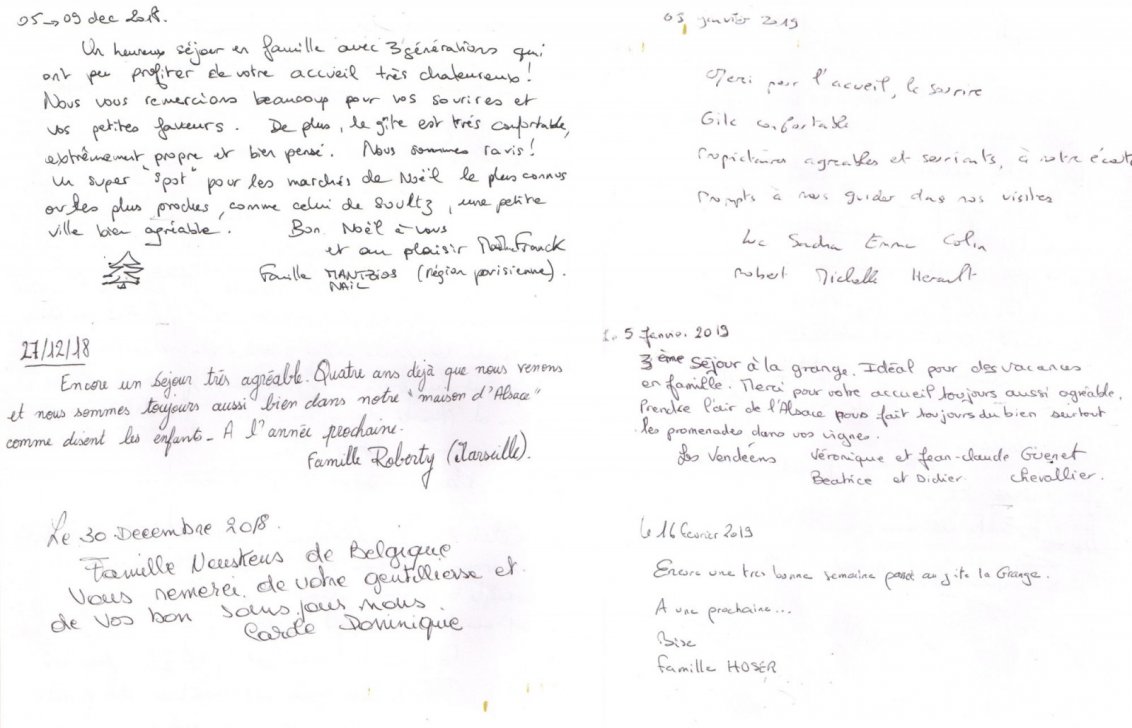 05→09 dec 2018.
Un heureux séjour en famille avec 3 générations qui
ont pu profiter de votre accueil très chaleureux !
Nous vous remercions beaucoup pour vos sourires et
vos petites faveurs. De plus, le gîte est très confortable,
extrêmement propre et bien pensé. Nous sommes ravis !
un super "spot" pour les marchés de Noël le plus connus
ou les plus proches, comme celui de Soultz, une petite
ville bien agréable. Bon Noël à vous
et au plaisir Franck
Famille MANTZIOS (région parisienne).
NAIL
27/12/18
Encore un séjour très agréable. Quatre ans déjà que nous venons
et nous sommes toujours aussi bien dans notre "maison d'Alsace"
comme disent les enfants - A l'année prochaine.
Famille Roberty (Marseille).
Le 30 Decembre 2018.
Famille Neuskens de Belgique
Vous remerci de votre gentilliesse et
de vos bon
Carole Dominique
05 janvier 2019
Merci pour l'accueil, le sourire
Gite confortable
Propriétaires agréables et souriants, à votre écoute
Prompts à nous guider dans nos visites
Luc Sandra Emma Colin
Robert Michelle Herault
5 Janvi. 2019
3ème séjour à la grange. Idéal pour des vacances
en famille. Merci pour votre accueil toujours aussi agréable.
Prendre l'air de l'Alsace nous fait toujours du bien surtout
les promenades dans vos vignes.
Les Vendéens Véronique et Jean-claude Guenet
Beatrice et Didier Chevallier.
le 16 février 2019
Encore une tres bonne semaine passé au gite la Grange.
A une prochaine...
Bise
famille HOSER